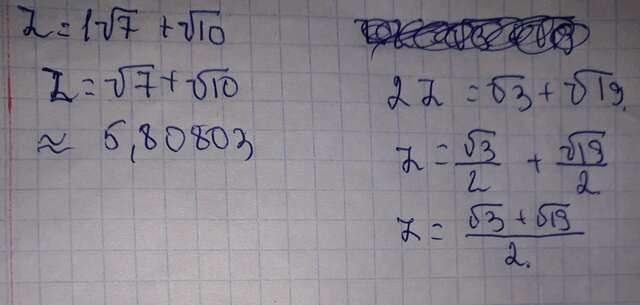 Z = 1√7 + √10
Z = √7 + √10
≈ 5,80803
2Z = √3 + √19
Z = √3/2 + √19/2
Z = (√3 + √19)/2.